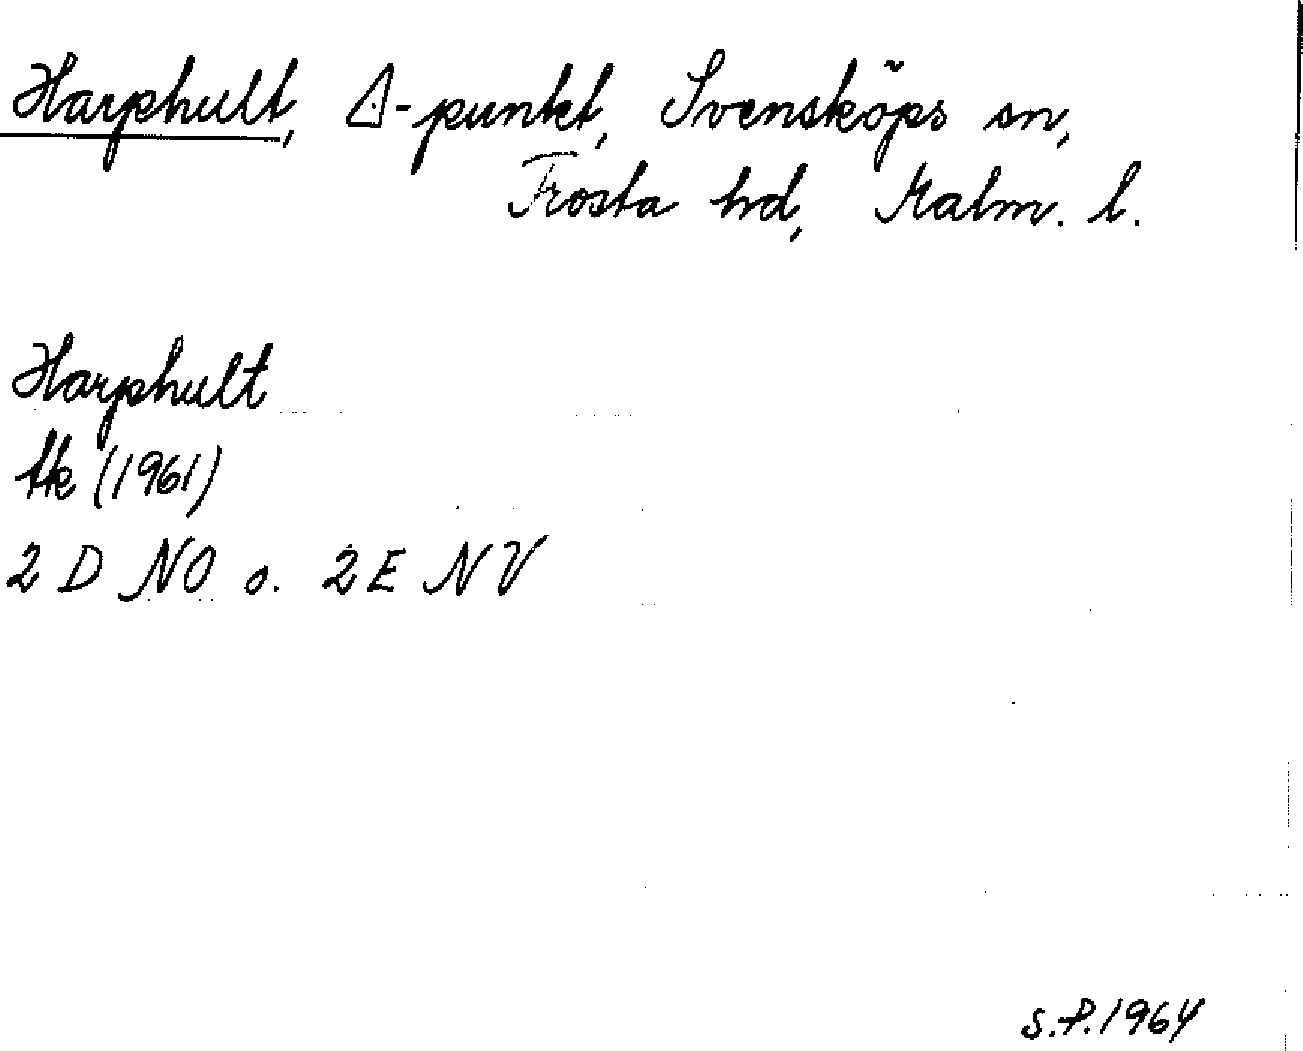 Harphult, Δ-punkt, Svensköps sn,
Frosta hd, Malm. l.
Harphult
tk (1961)
2 D NO o. 2 E NV
S.P. 1964